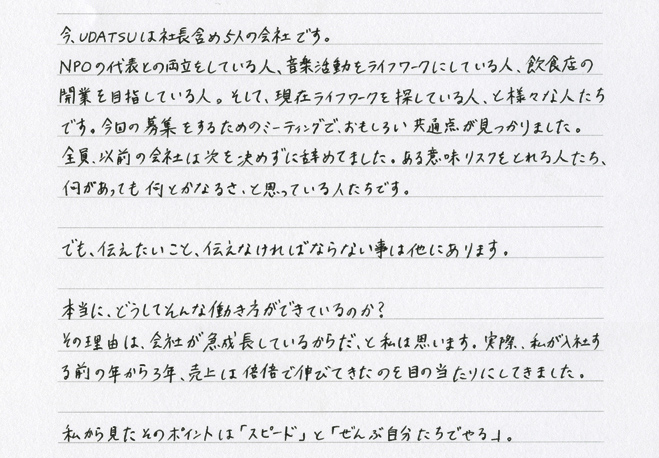 今、UDATSUは社長含め5人の会社です。
NPOの代表との両立をしている人、音楽活動をライフワークにしている人、飲食店の
開業を目指している人。そして、現在ライフワークを探している人、と様々な人たち
です。今回の募集をするためのミーティングで、おもしろい共通点が見つかりました。
全員、以前の会社は次を決めずに辞めてました。ある意味リスクをとれる人たち、
何があっても何とかなるさ、と思っている人たちです。
でも、伝えたいこと、伝えなければならない事は他にあります。
本当に、どうしてそんな働き方ができているのか?
その理由は、会社が急成長しているからだ、と私は思います。実際、私が入社す
る前の年から3年、売上は倍倍で伸びてきたのを目の当たりにしてきました。
私から見たそのポイントは「スピード」と「ぜんぶ自分たちでやる」。